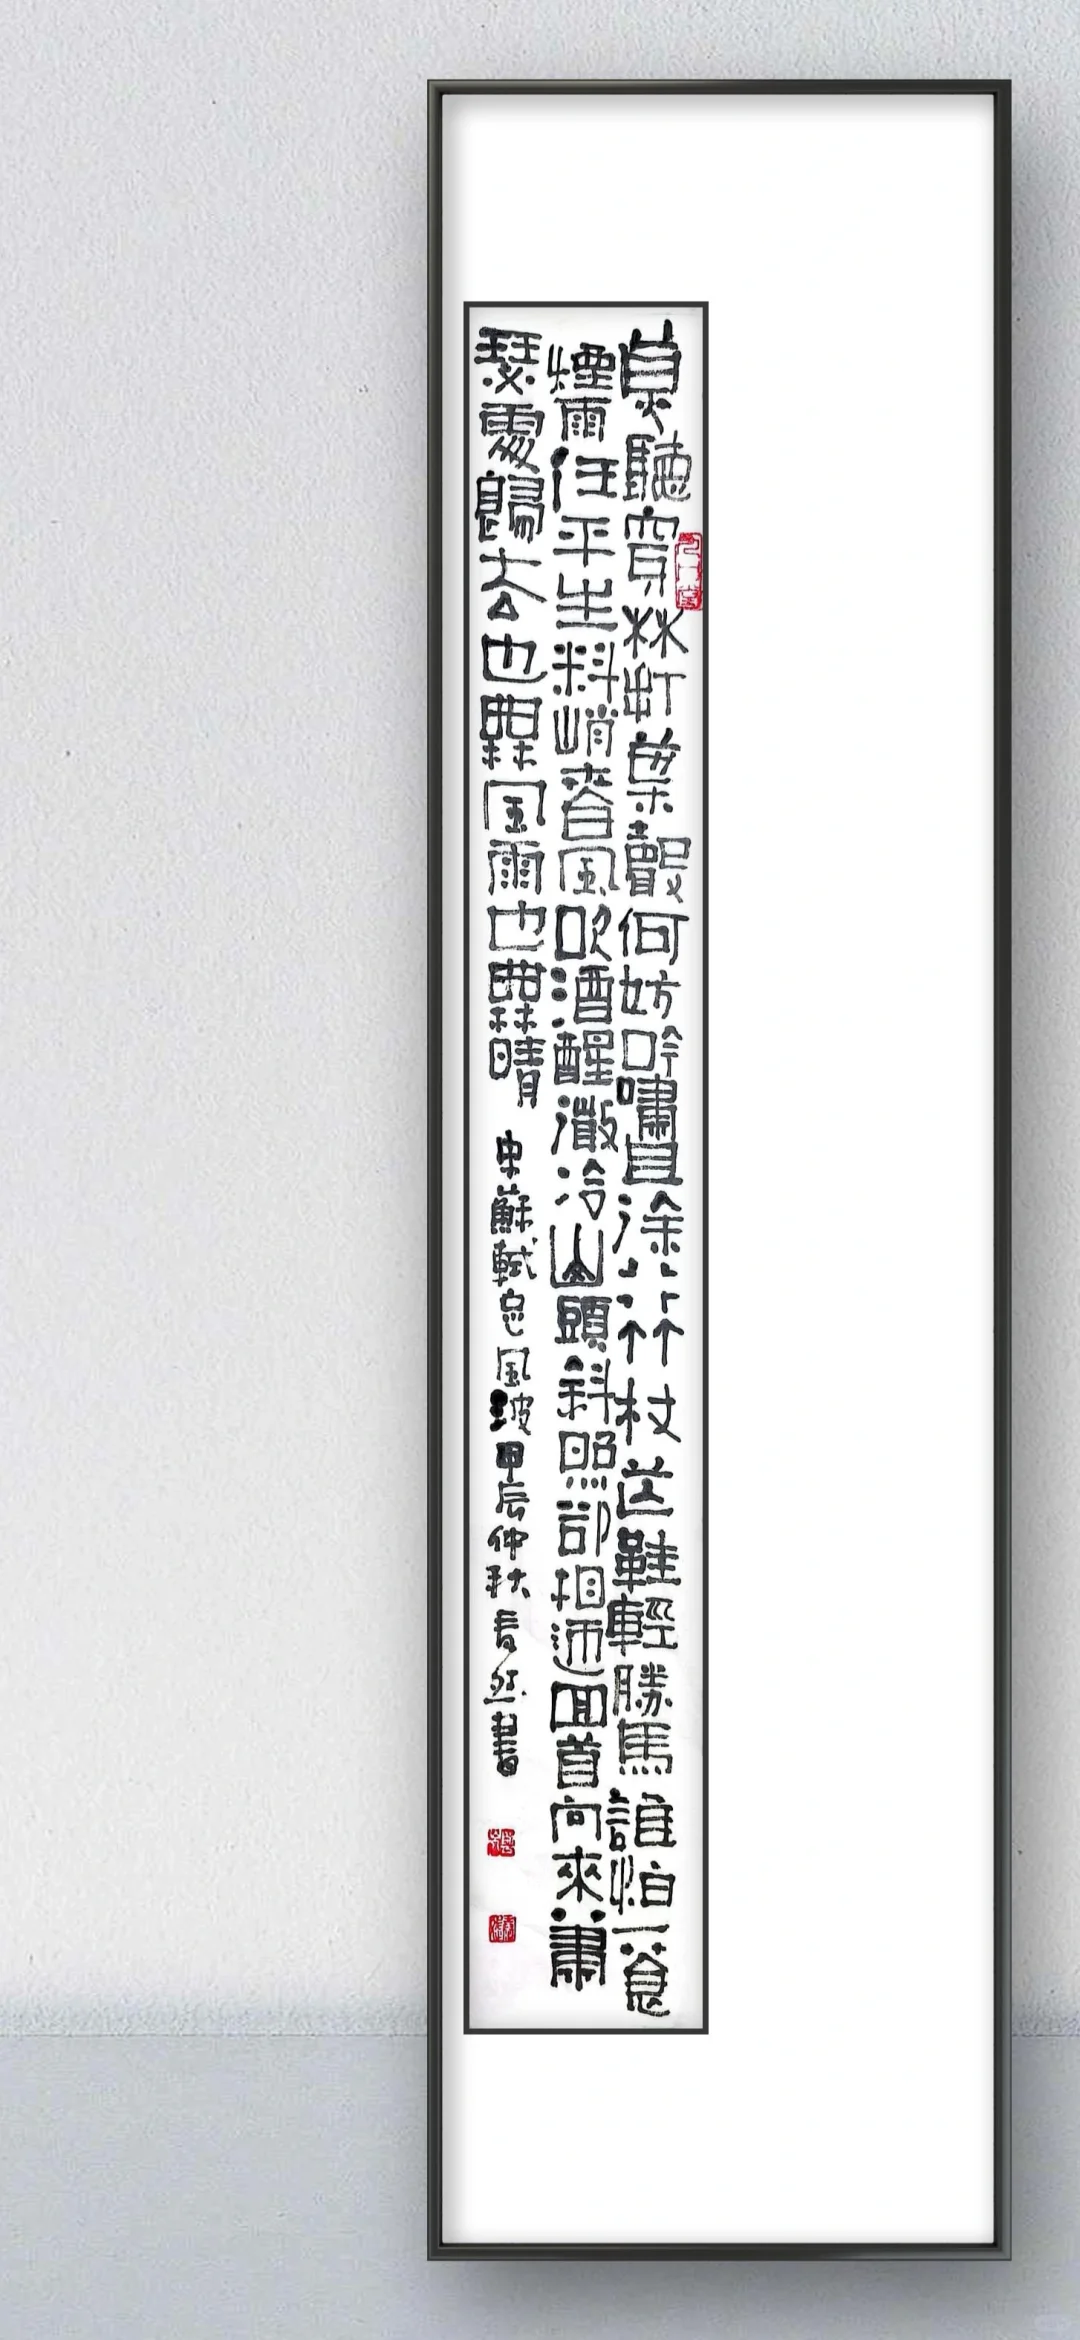 莫聽穿林打葉聲何妨吟嘯且徐竹杖芒鞋輕勝馬誰怕一蓑
煙雨任平生料峭春風吹酒醒微冷山頭斜照卻相迎回首向來蕭
瑟處歸去也無風雨也無晴
宋蘇軾定風波甲辰仲秋然書